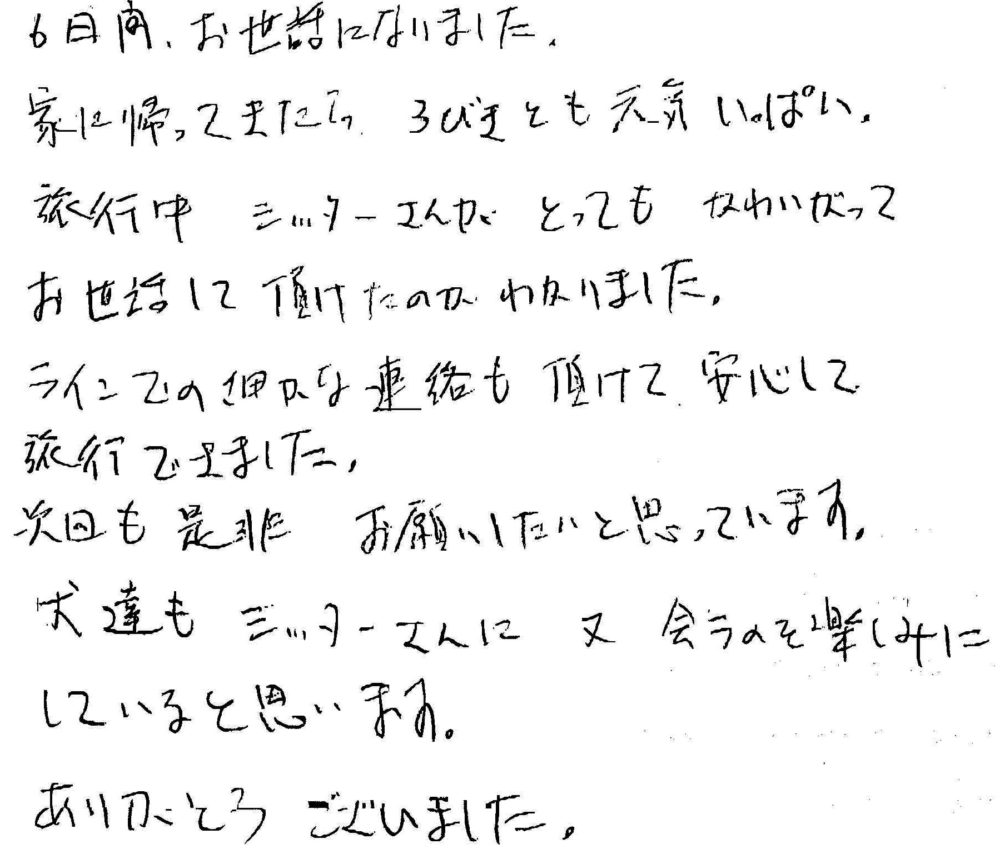 6日間、お世話になりました。
家に帰ってきたら、3びきとも元気いっぱい。
旅行中 シッターさんが とっても かわいがって
お世話して頂けたのがわかりました。
ラインでの細かな連絡も頂けて、安心して
旅行できました。
次回も是非 お願いしたいと思っています。
犬達も シッターさんに 又 会うのを楽しみに
していると思います。
ありがとう ございました。